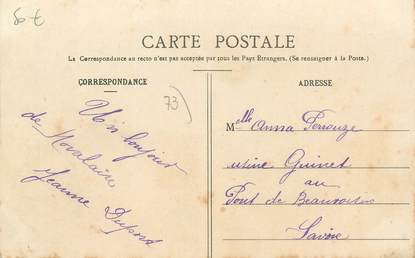 50 €
CARTE POSTALE
La Correspondance au recto n'est pas acceptée par tous les Pays Étrangers. (Se renseigner à la Poste.)
CORRESPONDANCE
73
Un bonjour
de Novalaise
Jeanne Dupond
ADRESSE
Melle Anna Perrouze
usine Guinet
au
Pont de Beauvoisin
Savoie